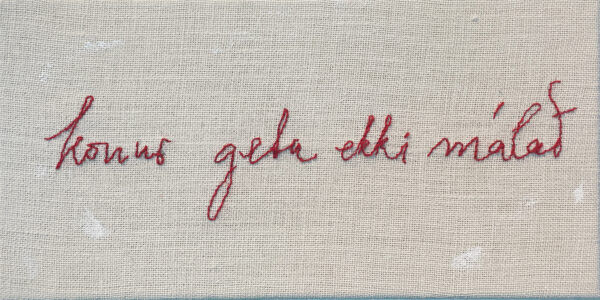 konur geta ekki málað